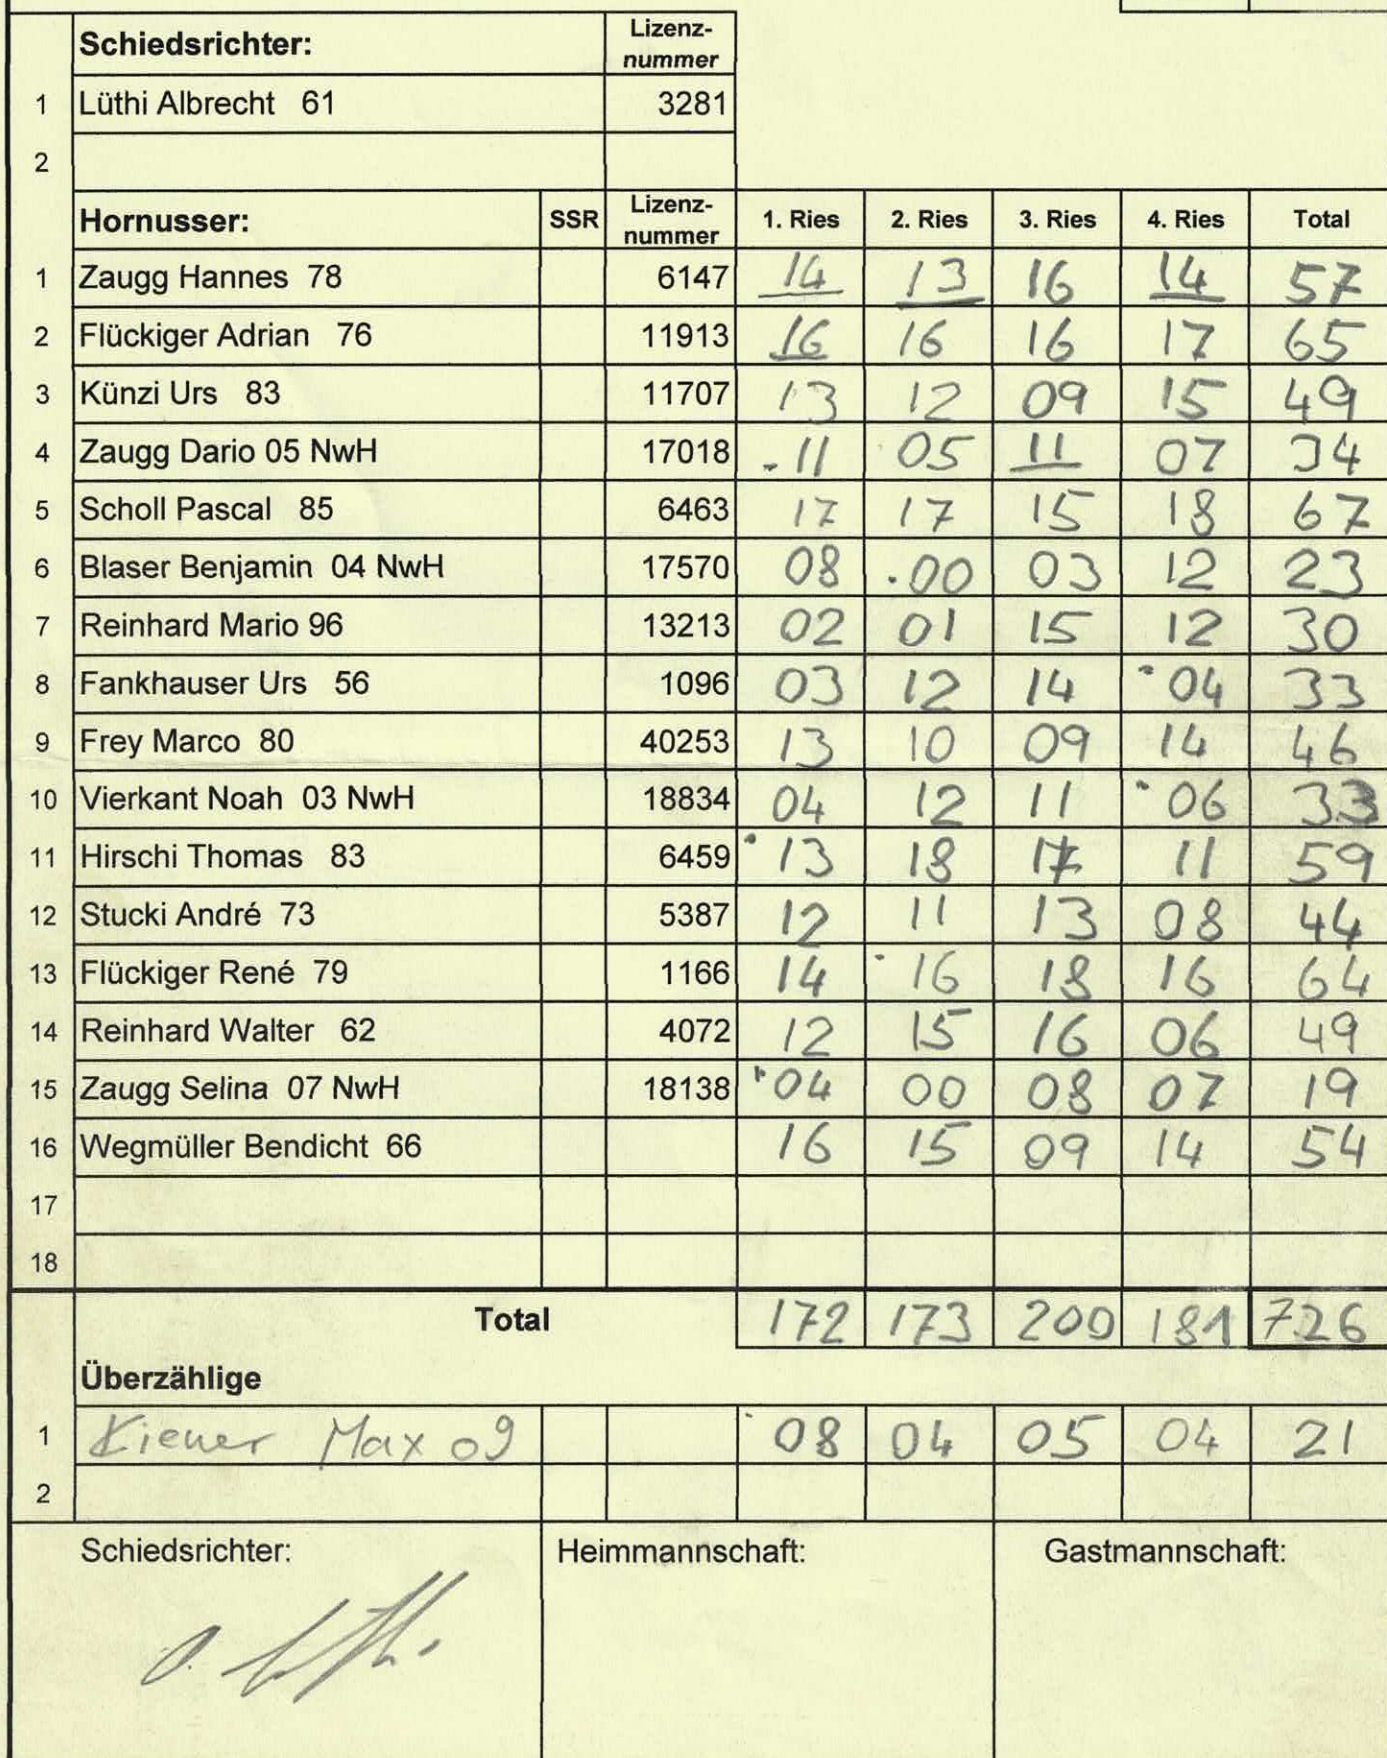 Schiedsrichter: Lizenz-nummer
1 Lüthi Albrecht 61 3281
2
Hornusser: SSR Lizenz-nummer 1. Ries 2. Ries 3. Ries 4. Ries Total
1 Zaugg Hannes 78 6147 14 13 16 14 57
2 Flückiger Adrian 76 11913 16 16 16 17 65
3 Künzi Urs 83 11707 13 12 09 15 49
4 Zaugg Dario 05 NwH 17018 11 05 11 07 34
5 Scholl Pascal 85 6463 17 17 15 18 67
6 Blaser Benjamin 04 NwH 17570 08 00 03 12 23
7 Reinhard Mario 96 13213 02 01 15 12 30
8 Fankhauser Urs 56 1096 03 12 14 04 33
9 Frey Marco 80 40253 13 10 09 14 46
10 Vierkant Noah 03 NwH 18834 04 12 11 06 33
11 Hirschi Thomas 83 6459 13 18 17 11 59
12 Stucki André 73 5387 12 11 13 08 44
13 Flückiger René 79 1166 14 16 18 16 64
14 Reinhard Walter 62 4072 12 15 16 06 49
15 Zaugg Selina 07 NwH 18138 04 00 08 07 19
16 Wegmüller Bendicht 66 16 15 09 14 54
17
18
Total 172 173 200 181 726
Überzählige
1 Kiener Max 09 08 04 05 04 21
2
Schiedsrichter: Heimmannschaft: Gastmannschaft: